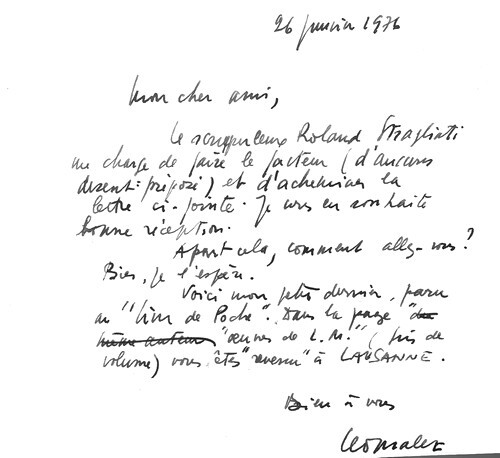 26 janvier 1976
Mon cher ami,
Le scrupuleux Roland Stragliati
me charge de faire le facteur (d'aucuns
disent : préposé) et d'acheminer la
lettre ci-jointe. Je vous en souhaite
bonne réception.
A part cela, comment allez-vous ?
Bien, je l'espère.
Voici mon petit dernier, paru
au "Livre de Poche". Dans la page "du
même auteur" "œuvres de L.M." (fin de
volume) vous êtes "revenu" à LAUSANNE.
Bien à vous